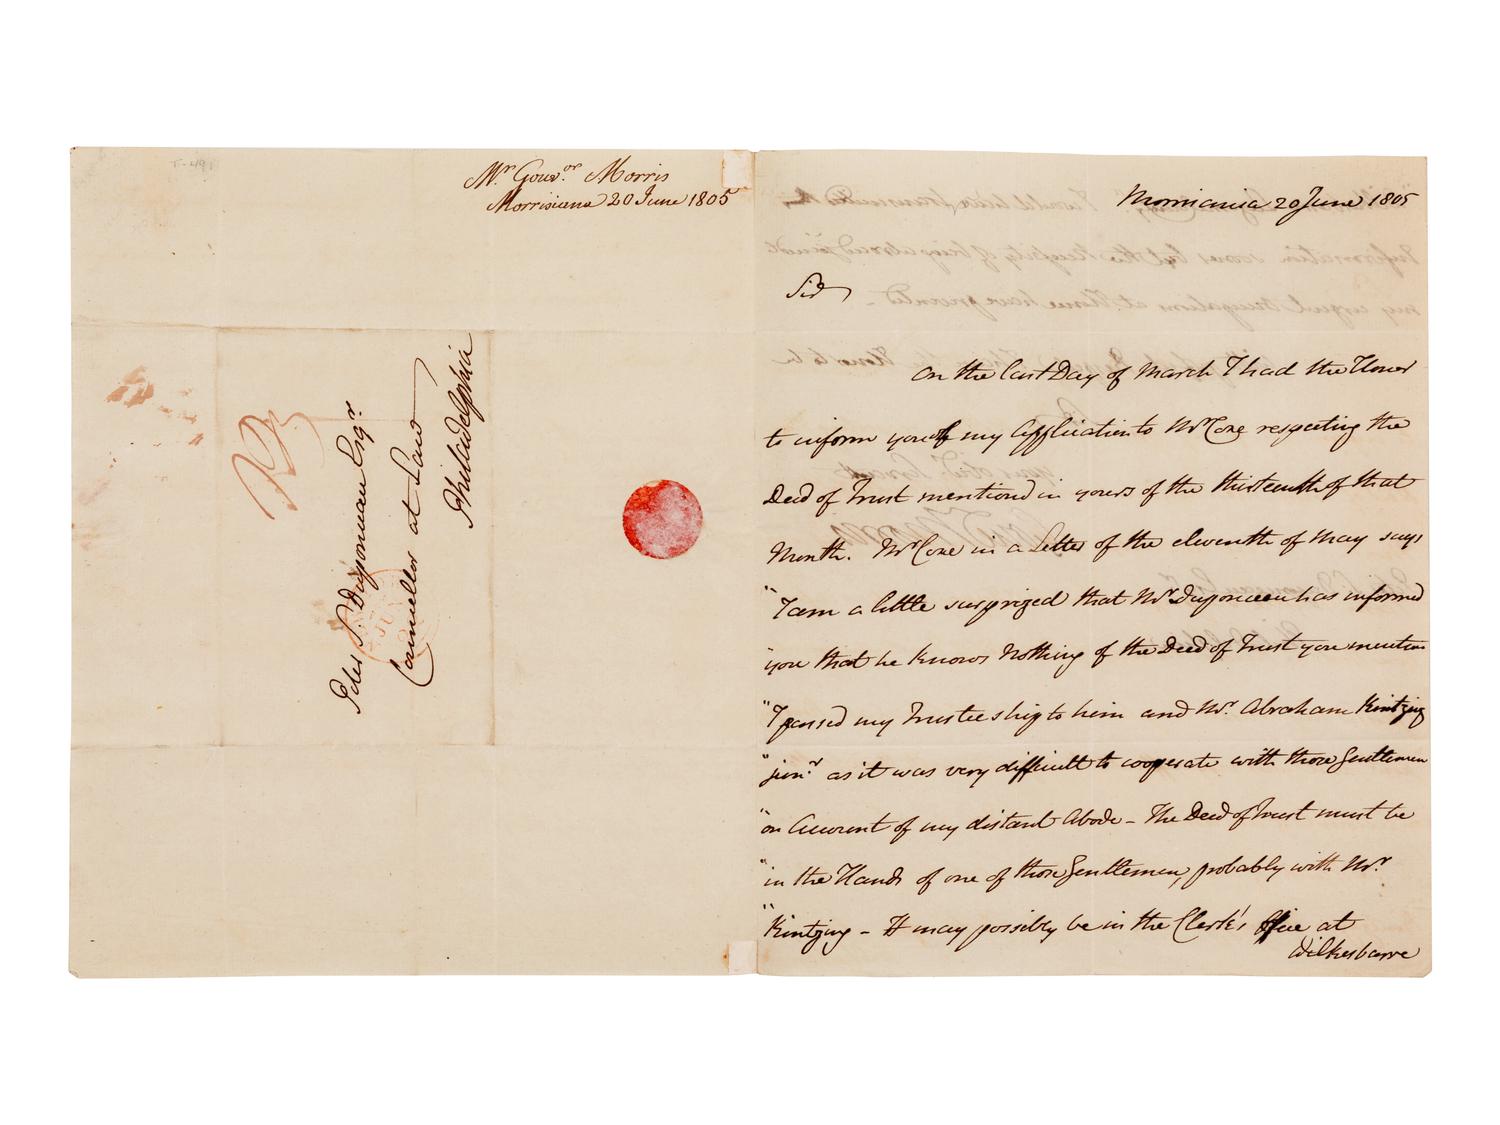 T-491
Mr Gouvor Morris
Morrisiana 20 June 1805
Peter S. Duponceau Esqr
Councellor at Law
Philadelphia
Morrisania 20 June 1805
Sir
On the last Day of March I had the Honor
to inform you of my Application to Mr Coxe respecting the
Deed of Trust mentioned in yours of the thirteenth of that
Month. Mr Coxe in a Letter of the eleventh of May says
"I am a little surprized that Mr Duponceau has informed
"you that he knows Nothing of the Deed of Trust you mention
"I passed my Trusteeship to him and Mr. Abraham Kintzing
"junr. as it was very difficult to cooperate with those Gentlemen
"on Account of my distant Abode - The Deed of Trust must be
"in the Hands of one of those Gentlemen, probably with Mr.
"Kintzing - It may possibly be in the Clerk's Office at
Wilkesbarre